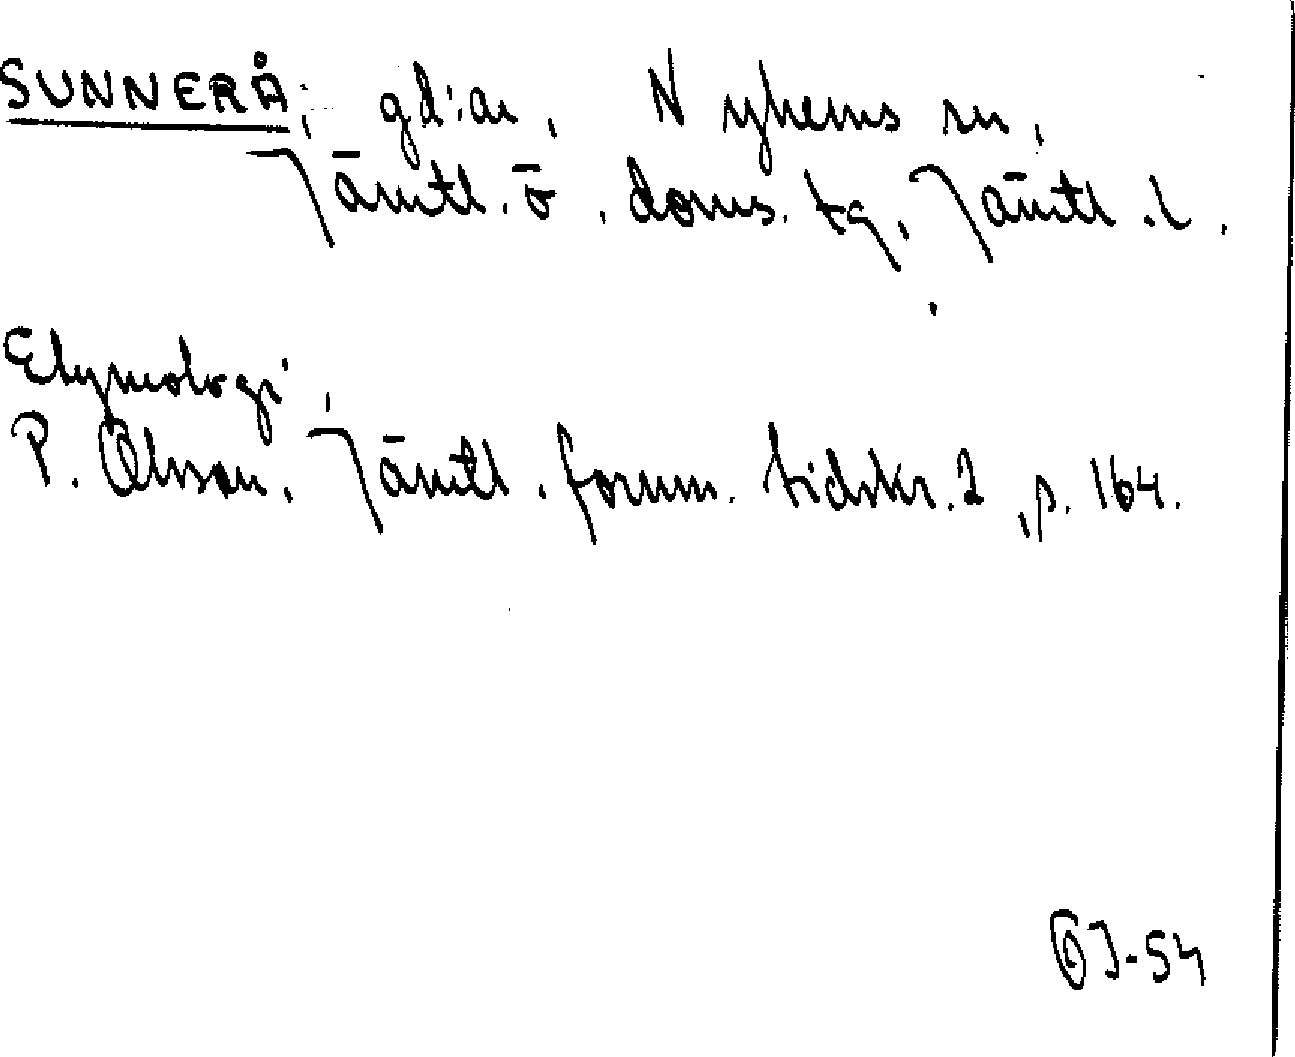 SUNNERÅ, gd:ar, Nyhems sn,
Jämtl. ö. doms. tg, Jämtl. l.
Etymologi,
P. Olsson, Jämtl. fornm. tidskr. 2, p. 164.
OJ-54